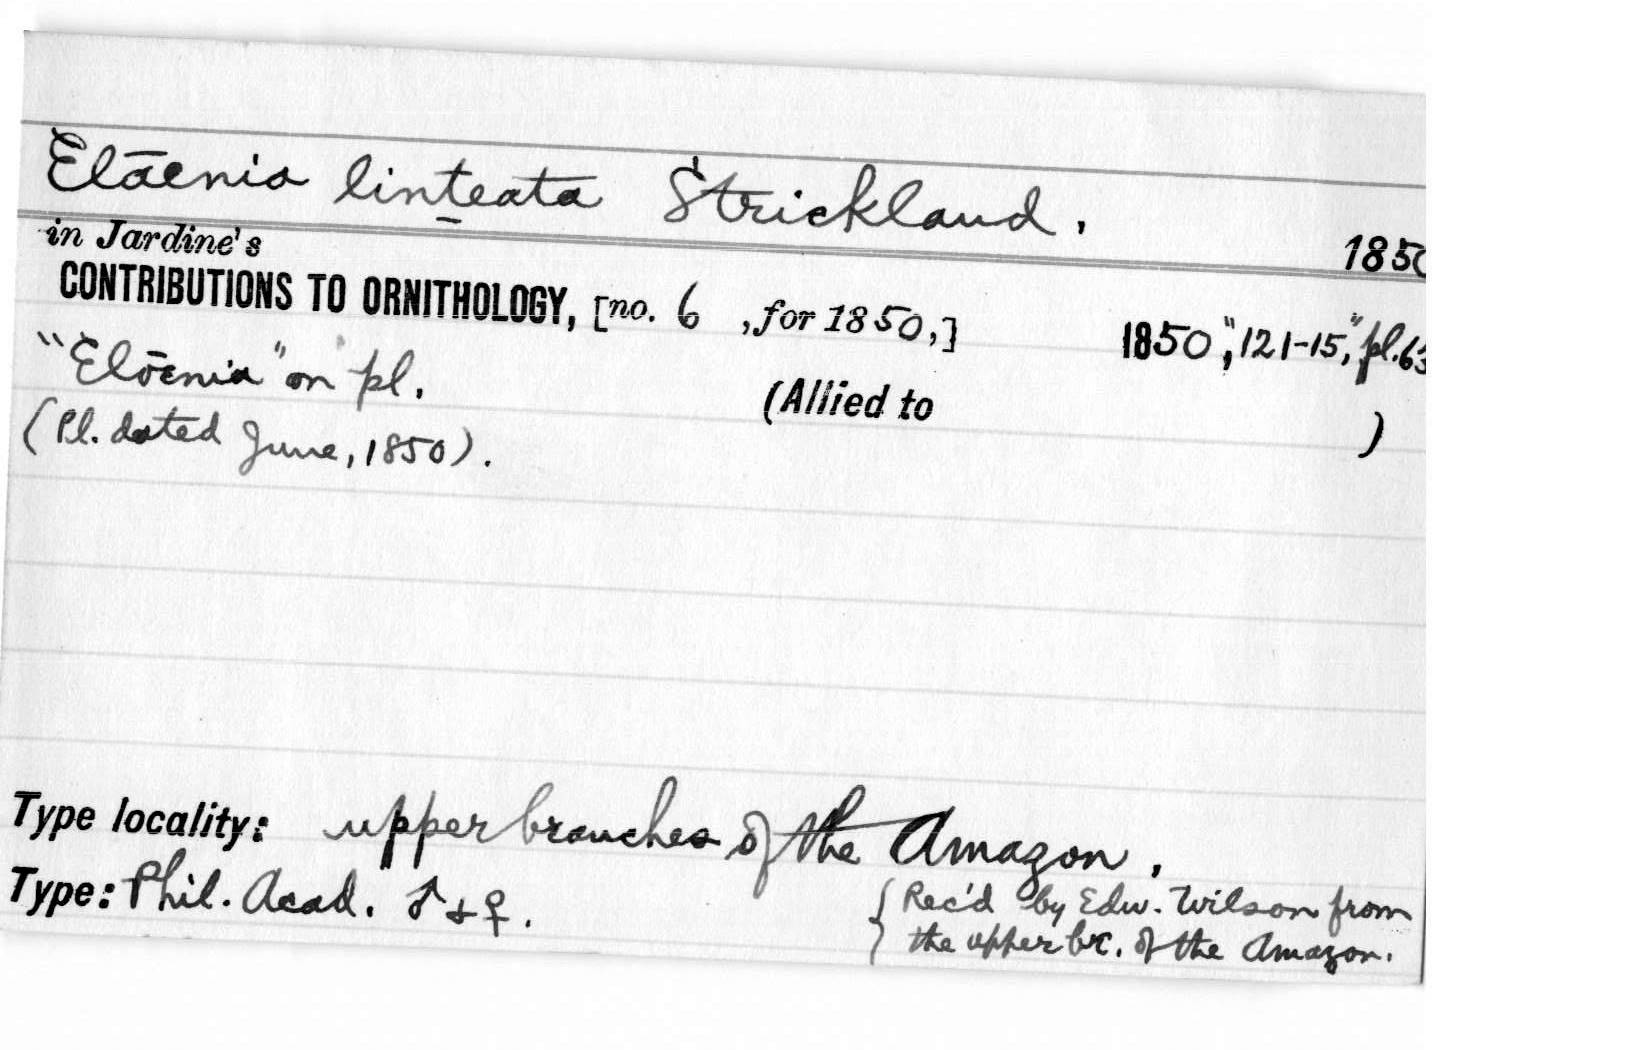 Elāenia linteata Strickland.
1850
in Jardine's
CONTRIBUTIONS TO ORNITHOLOGY, [no. 6 , for 1850,] 1850,"121-15," pl. 63
"Elōenia" on pl.
(Allied to )
(Pl. dated June, 1850).
Type locality: upper branches of the Amazon.
Type: Phil. Acad. ♂ + ♀.
{ Rec'd by Edw. Wilson from
the upper br. of the Amazon.